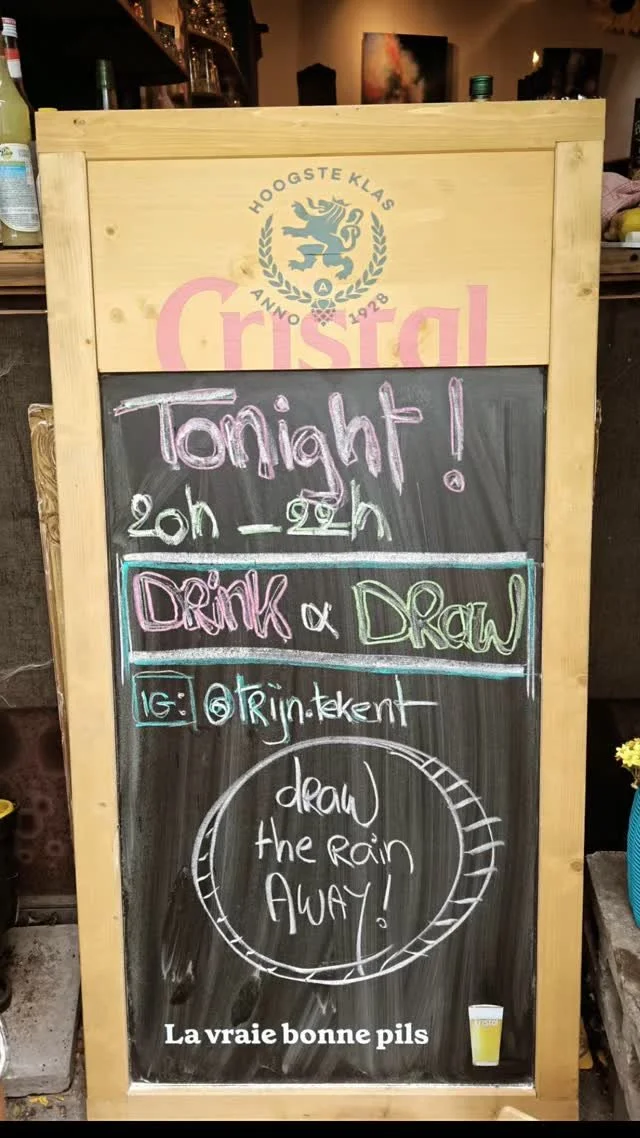 HOOGSTE KLAS
A
ANNO 1928
Cristal
Tonight!
20h - 22h
DRinK & DRaW
IG: @tRijn.tekent
dRaW
the Rain
AWAY!
La vraie bonne pils
CRISTAL